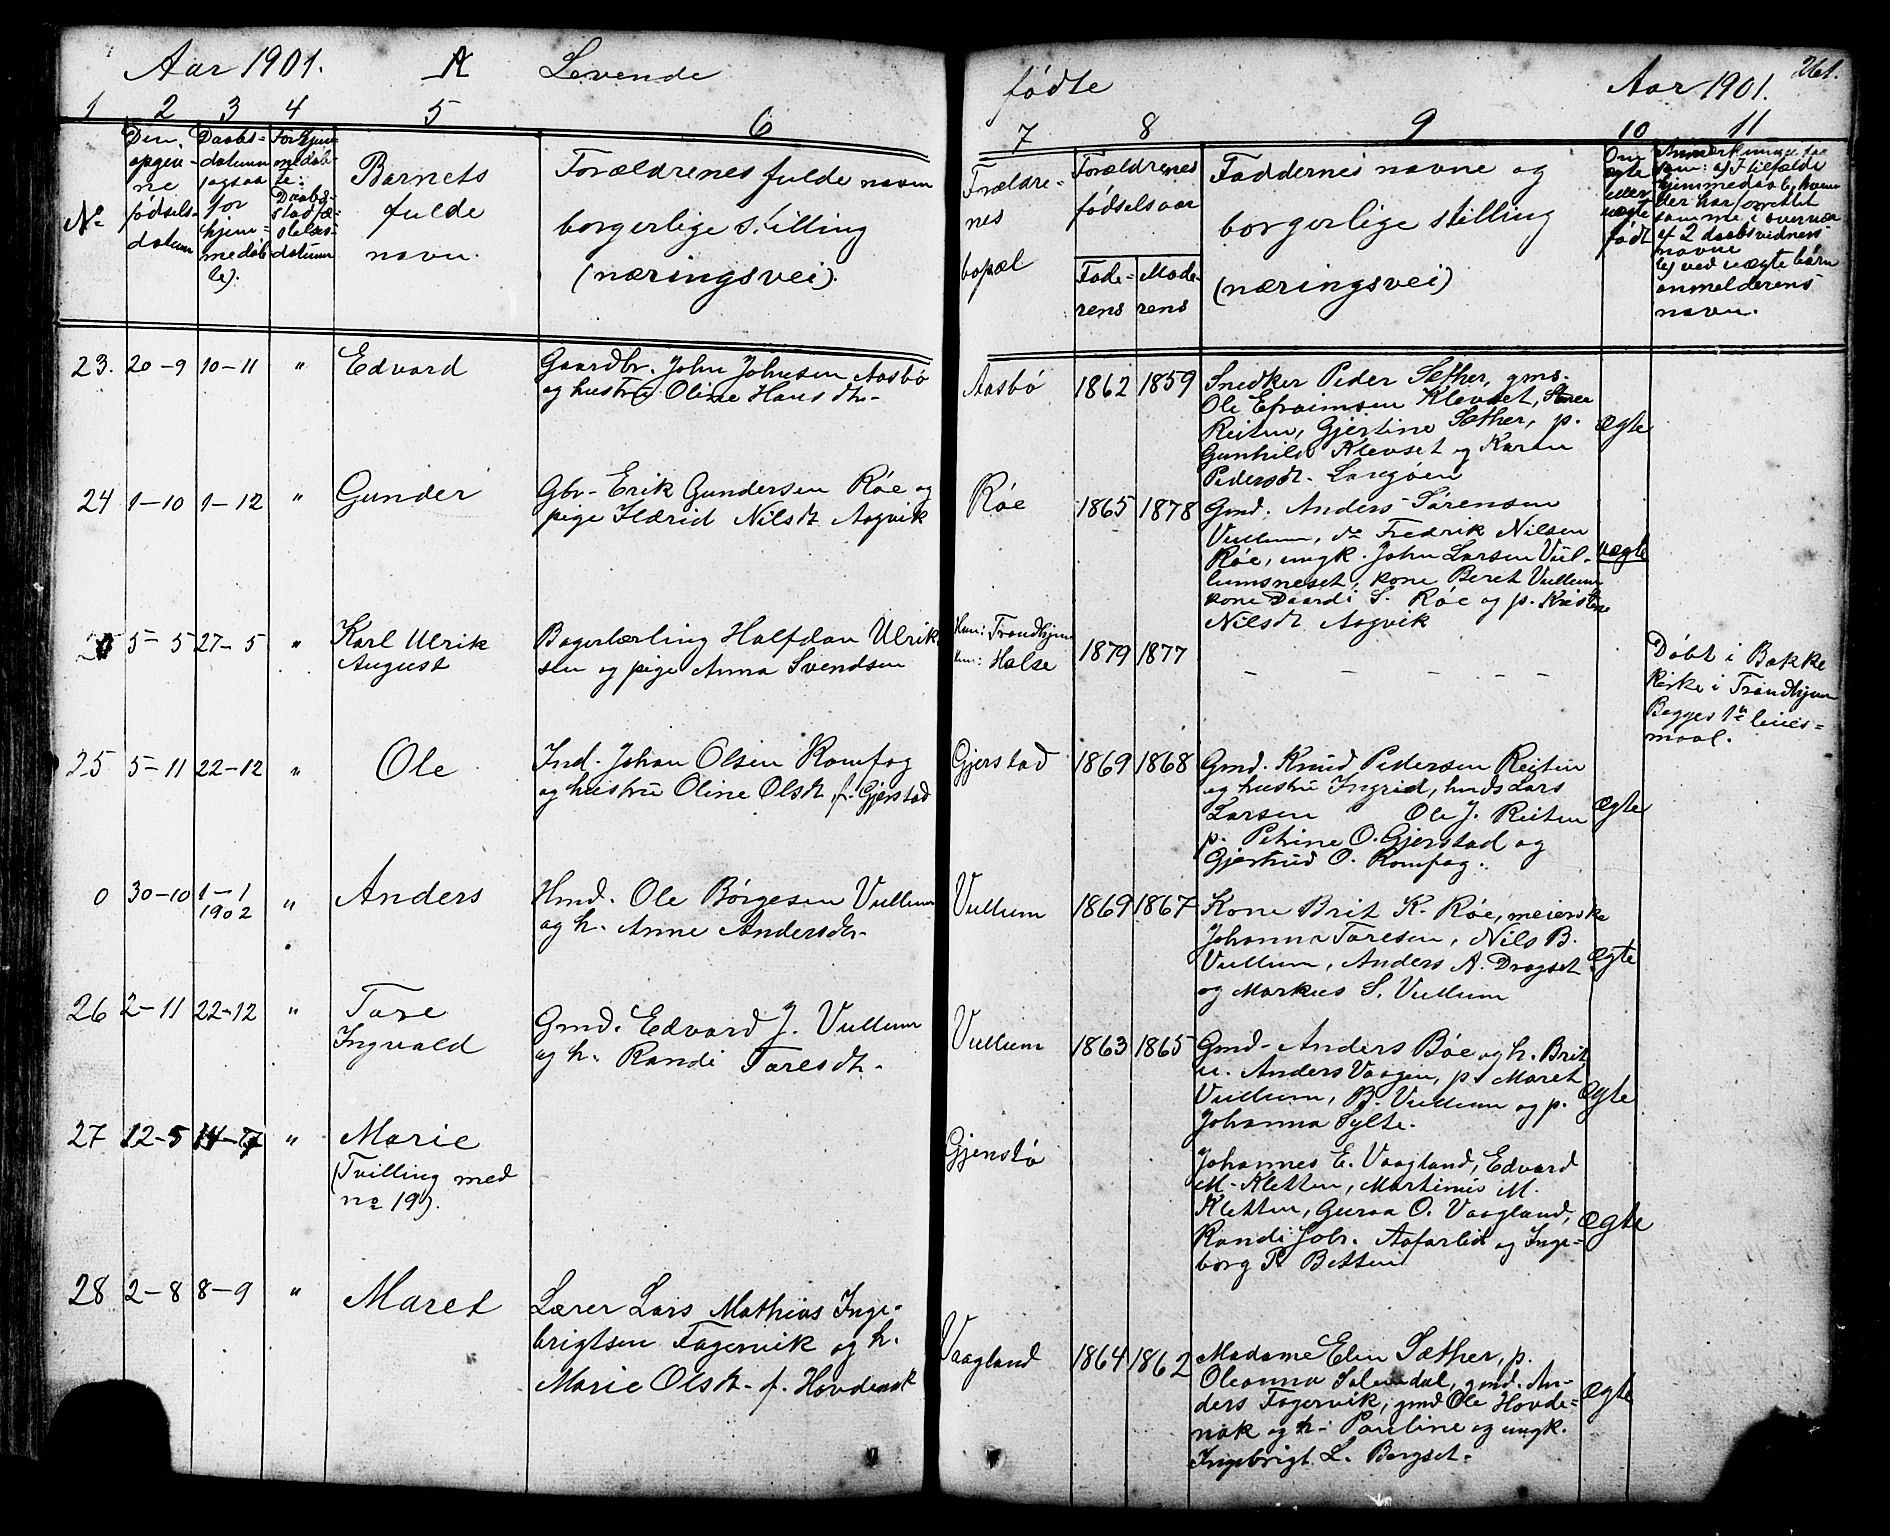 Aar 1901. A Levende
fødte Aar 1901. 261.
1 2 3 4 5 6
7 8 9 10 11
No
Den opgivne fødselsdatum
Daabsdatum (ogsaa for hjemmedøbte).
For hjemmedøbte: Daabsstadfæstelsesdatum
Barnets
fulde
navn.
Forældrenes fulde navn
borgerlige stilling
(næringsvei).
Forældre-
nes
bopæl
Forældrenes
fødselsaar
Fade-
rens
Mode-
rens
Faddernes navne og
borgerlige stilling
(næringsvei)
Om
ægte
eller
uægte
født
hjemmedaab, hvem
der har forrettet
samme i overvær
af 2 daabsvidners
navne
b) ved uægte børn
anmelderens
navn.
23. 20-9 10-11 " Edvard
Gaardbr. John Johnsen Aasbø
og hustru Oline Hansdtr.
Aasbø 1862 1859
Snedker Peder Sæther, gmd.
Ole Efraimsen Klevset,
Reiten, Gjertine Sæther, p.
Gunhild Klevset og Karen
Pedersdt. Langøen
ægte
24 1-10 1-12 " Gunder
Gbr. Erik Gundersen Røe og
pige Nilsdt Aagvik
Røe 1865 1878
Gmd. Anders Sørensen
Vullum, do Fredrik Nilsen
Røe, ungk. John Larsen Vul-
lumsneset, kone Beret Vullum
kone Baardi S. Røe og p. Kristine
Nilsdt Aagvik
uægte
5-5 27-5 " Karl Ulrik
August
Bagerlærling Halfdan Ulrik
sen og pige Anna Svendsen
Han: Trondhjem
Hun: Halse
1879 1877
- - - - -
Døbt i Bakke
Kirke i Trondhjem
Begges 1ste leies-
maal.
25 5-11 22-12 " Ole
Ind. Johan Olsen Romfog
og hustru Oline Olsdt f. Gjerstad
Gjerstad 1869 1868
Gmd. Knud Pedersen Reiten
og hustru Ingrid, Lars
Larsen Ole J. Reiten
p. Petrine O. Gjerstad og
Gjertrud O. Romfog.
Ægte
0 30-10 1-1
1902 " Anders
Hmd. Ole Børgesen Vullum
og h. Anne Andersdtr.
Vullum 1869 1867
Kone Brit K. Røe, meierske
Johanna Taresen, Nils B.
Vullum, Anders A. Drogset
og Markus S. Vullum
Ægte
26 2-11 22-12 " Tare
Ingvald
Gmd. Edvard J. Vullum
og h. Randi Taresdtr.
Vullum 1863 1865
Gmd. Anders Bøe og h. Brit
u. Anders Vaagen, p. Maret
Vullum, B. Vullum og p.
Johanna Sylte.
Ægte
27 12-5 14-7 " Marie
(Tvilling med
no 19).
Gjenstø
Johannes E. Vaagland, Edvard
M. Kletten, Martinus M.
Kletten, Guroa O. Vaagland,
Randi Joh. Aafarlid og Inge-
borg P. Betten
Ægte
28 2-8 8-9 " Maret
Lærer Lars Mathias Inge-
brigtsen Fagervik og h.
Marie Olsdt. f. Hovdenak
Vaagland 1864 1862
Madame Elen Sæther, p.
Oleanna Solemdal, gmd. An-
ders Fagervik, gmd Ole Hovde-
nak og h. Pauline og ungk.
Ingebrigt L. Bergset.
Ægte